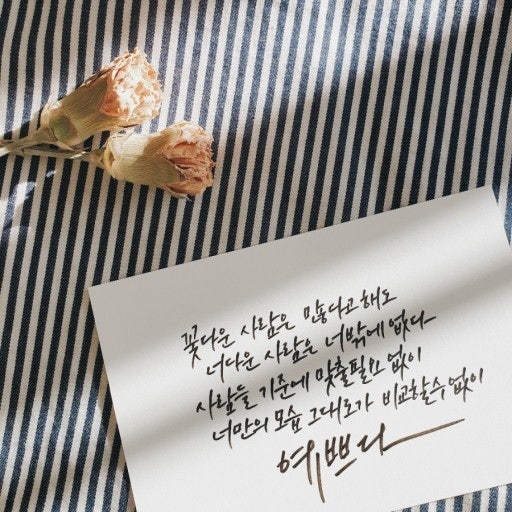 꽃다운 사람은 많다고 해도
너다운 사람은 너밖에 없다
사람들 기준에 맞출필요 없이
너만의 모습 그대로가 비교할수 없이
예쁘다